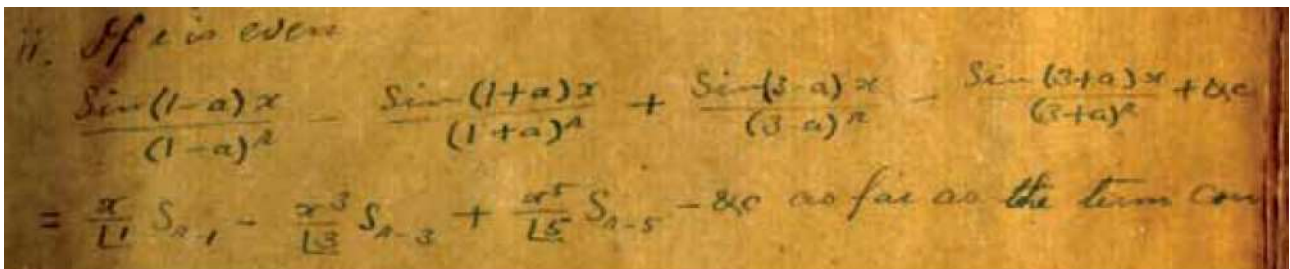 ii. If r is even
Sin(1-a)x/(1-a)^r - Sin(1+a)x/(1+a)^r + Sin(3-a)x/(3-a)^r - Sin(3+a)x/(3+a)^r + &c
= x/⌊1 S_{r-1} - x^3/⌊3 S_{r-3} + x^5/⌊5 S_{r-5} - &c as far as the term con